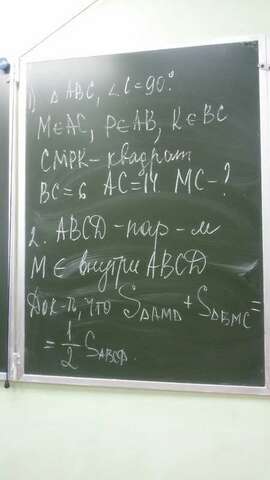 1) △ABC, ∠C=90°.
M∈AC, P∈AB, K∈BC
CMPK-квадрат
BC=6 AC=14 MC-?
2. ABCD-пар-м
M∈внутри ABCD
Док-ть, что S△AMD+S△BMC=
=1/2 SABCD.